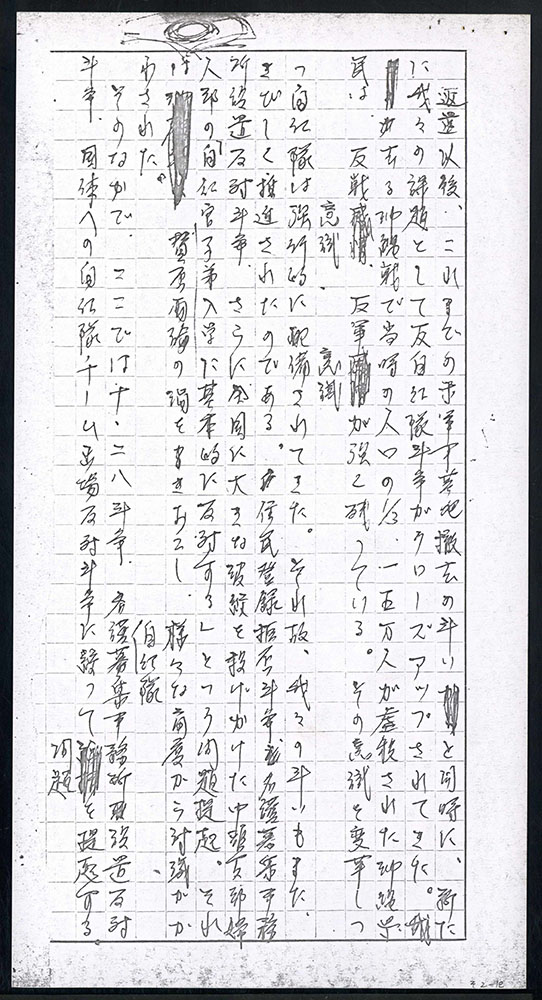 返還以後、これまでの米軍下基地撤去の斗いと同時に、新た
に我々の課題として反自衛隊斗争がクローズアップされてきた。
が去る沖縄戦で当時の人口の1/3、一五万人が虐殺された沖縄県
民は、反戦意識、反軍意識が強く残っている。その意識を変革しつ
つ自衛隊は強行的に配備されてきた。それ故、我々の斗いもまた、
きびしく推進されたのである。住民登録拒否斗争、名護募集事務
所設置反対斗争、さらに全国に大きな波紋を投げかけた中頭支部婦
人部の「自衛官子弟入学に基本的に反対する」という問題提起。それ
は 賛否両論の渦をまきおこし、様々な角度から討議がか
わされた。
そのなかで、ここでは十・二八斗争、名護募集事務所設置反対
斗争、国体への自衛隊チーム出場反対斗争に絞って自衛隊問題を提起する。